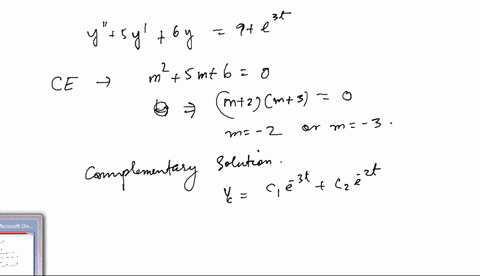 y'' + 5y' + 6y = 9 + e^{3t}
CE → m² + 5m + 6 = 0
⇒ (m+2)(m+3) = 0
m = -2 or m = -3.
Complementary Solution.
y_c = c₁e^{-3t} + c₂e^{-2t}
Microsoft On...